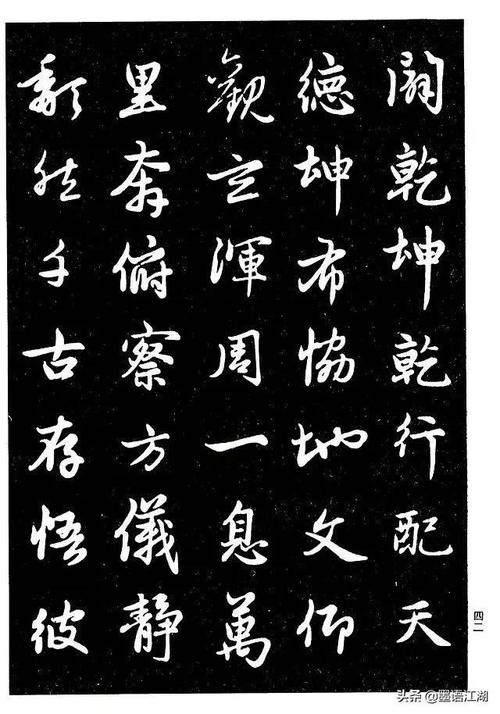 闢乾坤乾行配天
德坤布協地文仰
觀玄渾周一息萬
里奔俯察方儀靜
頹然千古存悟彼
四二
头条 @墨语江湖